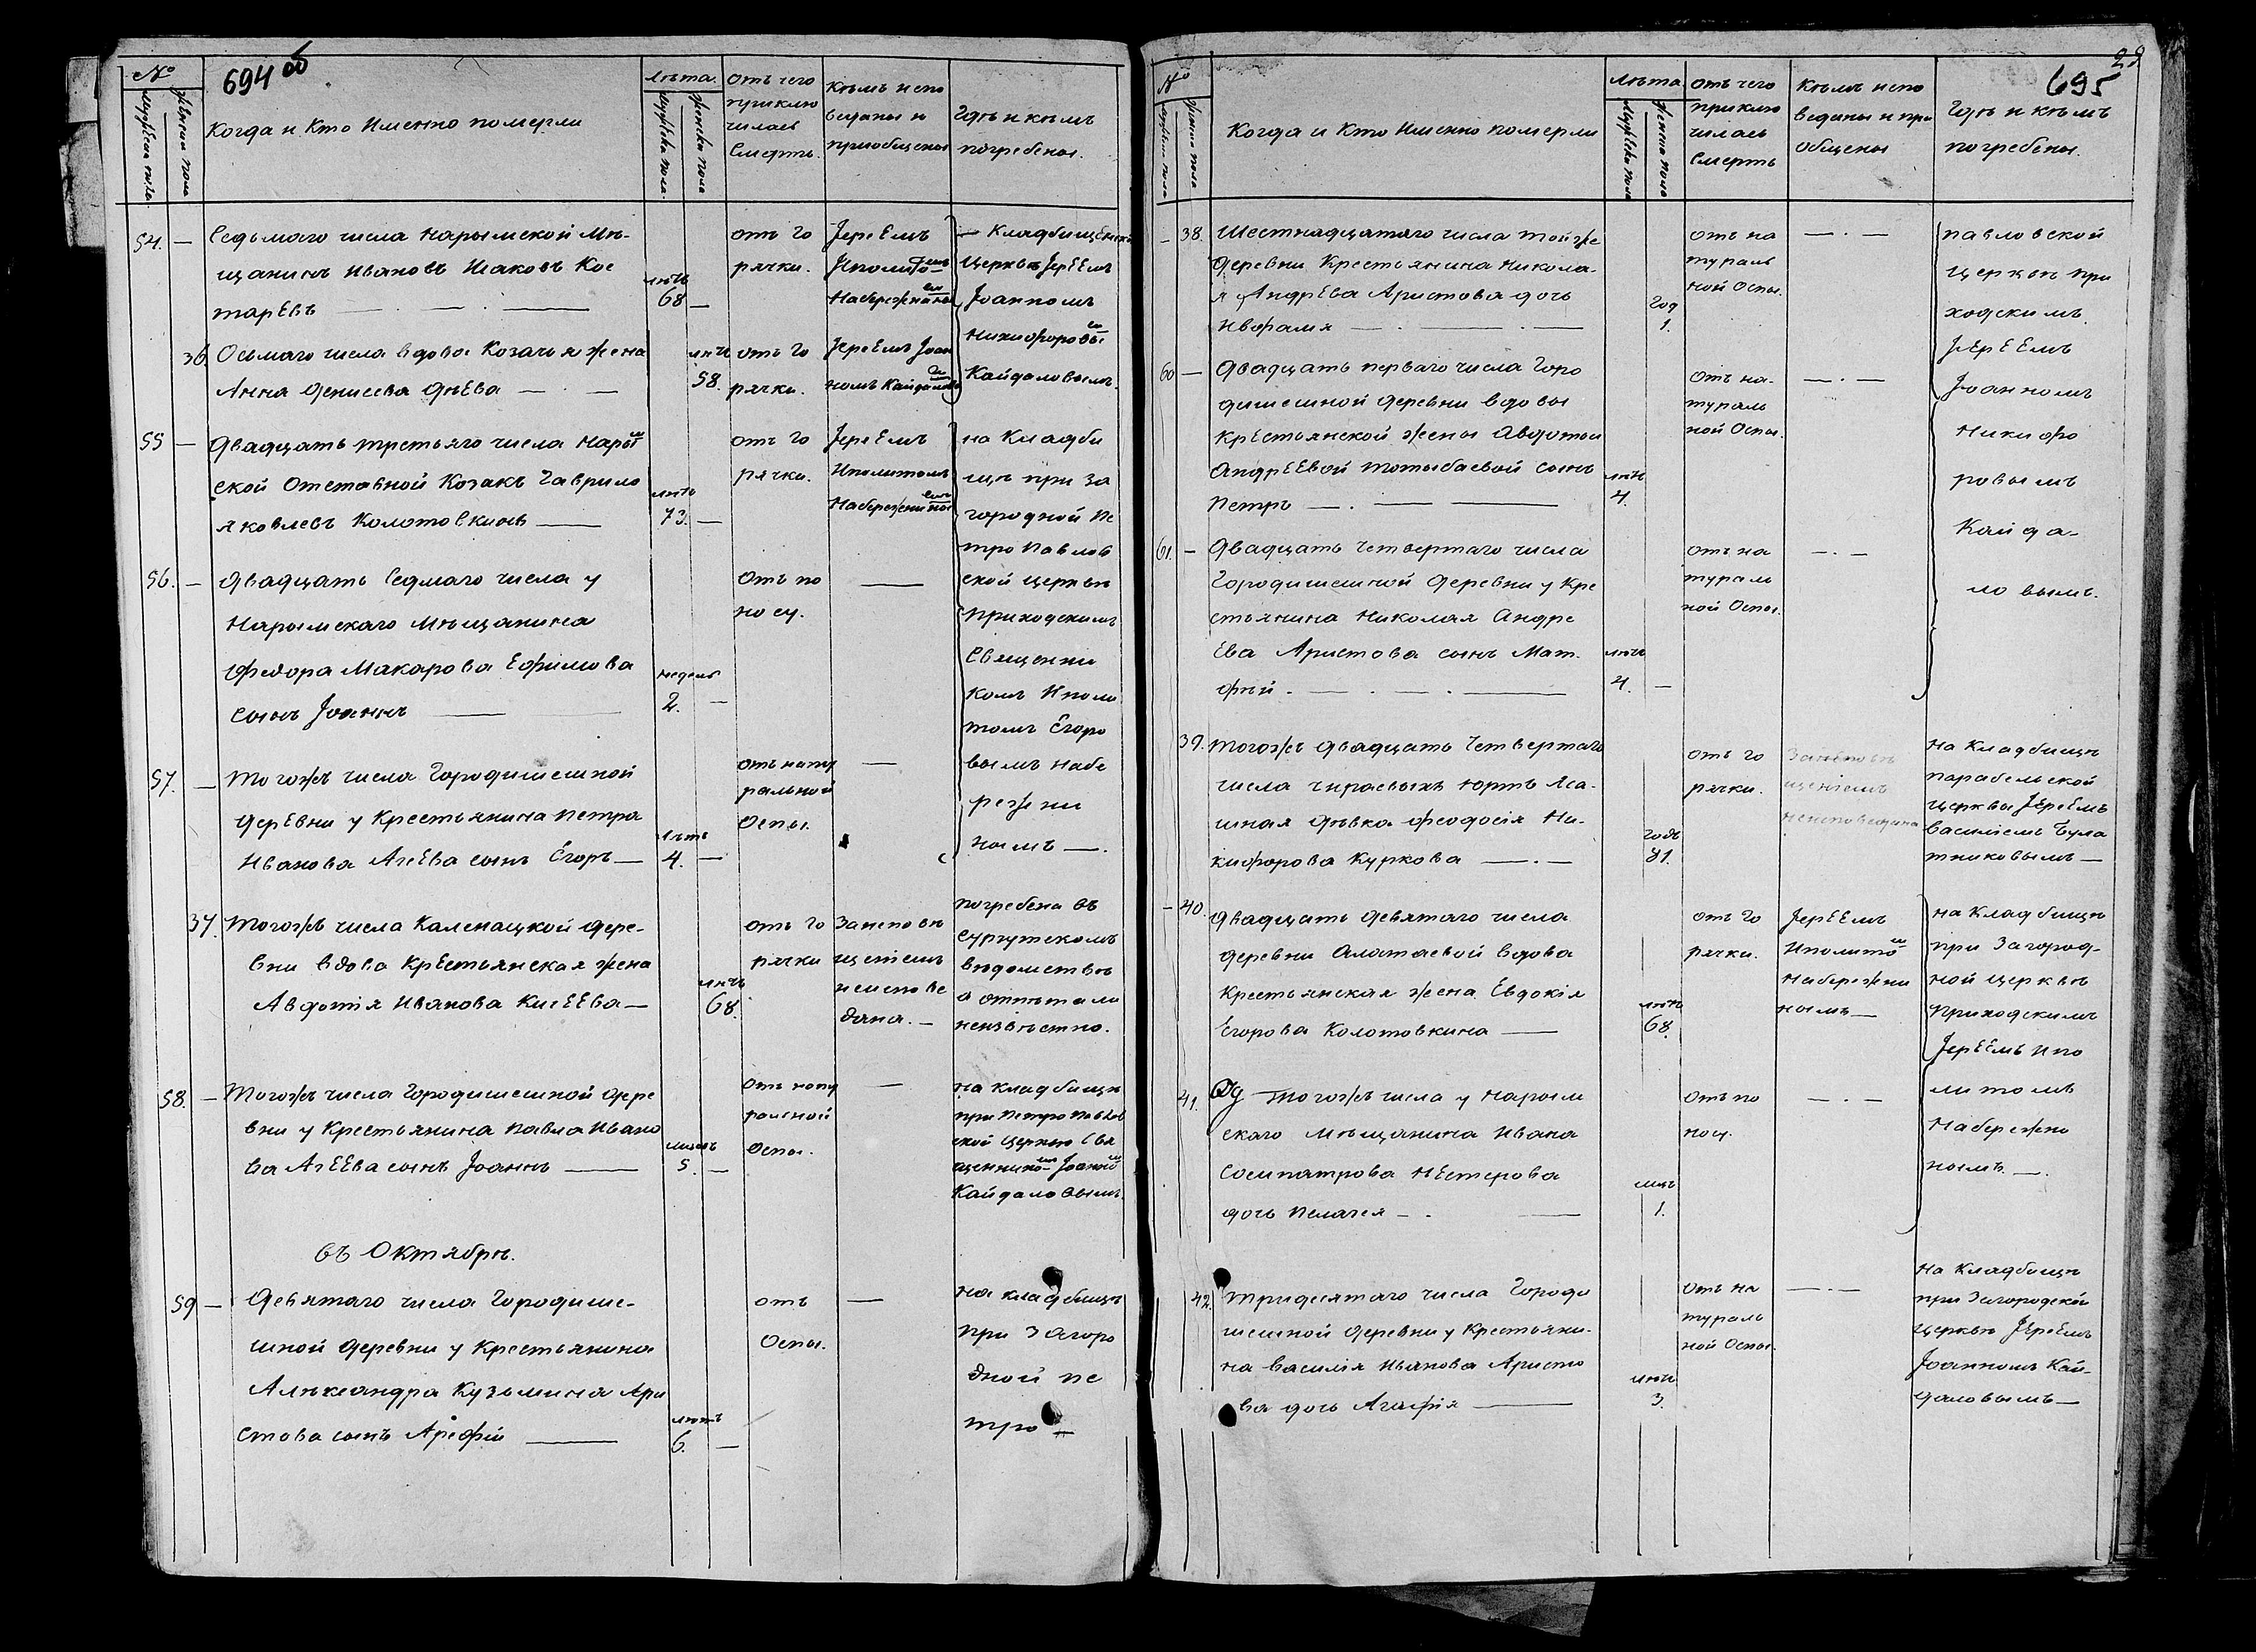 694 об
№
Мужеска пола
Женска пола
Когда и Кто Именно померли
Лѣта
Мужеска пола
Женска пола
Отъ чего
приклю
чилась
Смерть.
Кѣмъ испо
веданы и
приобщены
Гдѣ и кѣмъ
погребены.
54. —
Седьмаго числа Нарымской Мѣ-
щанинъ Ивановъ Исаковъ Кос
таревъ —
лѣтъ
68 —
отъ го
рячки.
Іереемъ
Иполитомъ
Набережнымъ
— Кладбищенск
Церкви Іереемъ
Іоанномъ
Никифоровымъ
Кайдаловымъ.
36.
Осьмаго числа вдова Козачья жена
Анна Денисева Днева — —
лѣтъ
58.
отъ го
рячки.
Іереемъ Іоан
номъ Кайдаловымъ
55 —
Двадцать третьяго числа Нарым
ской Отставной Козакъ Гаврило
Яковлевъ Колотовкинъ —
лѣтъ
73. —
отъ го
рячки.
Іереемъ
Иполитомъ
Набережнинымъ
на Кладби
щѣ при За
городной Пе
тро Павлов
ской церкви
приходскимъ
Священни
комъ Иполи
томъ Егоро
вымъ Набе
режни
нымъ —.
56. —
Двадцать Седмаго числа у
Нарымскаго Мѣщанина
Федора Макарова Ефимова
сынъ Іоаннъ —
недель
2. —
Отъ по
носу.
—
57. —
Тогожъ числа Городишешной
Деревни у Крестьянина Петра
Иванова Агеева сынъ Егоръ —
лѣтъ
4. —
отъ нату
ральной
Оспы.
—
37.
Тогожъ числа Каленацкой Дере-
вни вдова Крестьянская жена
Авдотія Иванова Кисеева —
лѣтъ
68.
отъ го
рячки
Занеповѣ
щеніемъ
неиспове
дана. —
погребена въ
Сургутскомъ
вѣдомствѣ
а отпѣтали
неизвѣстно.
58. —
Тогожъ числа Городишешной дере
вни у Крестьянина Павла Ивано
ва Агеева сынъ Іоаннъ —
5. —
Отъ нату
ральной
Оспы.
—
на кладбищѣ
при Петро Павлов
ской Церкви Свя
щенникомъ Іоанномъ
Кайдаловымъ
въ Октябрѣ.
59 —
Девятаго числа Городише-
шной Деревни у Крестьянина
Александра Кузьмина Ари
стова сынъ Арефій —
лѣтъ
6. —
отъ
Оспы.
—
на кладбищѣ
при Загоро
дной Пе
тро —
29
695
№
Мужеска пола
Женска пола
Когда и Кто Именно померли
Лѣта
Мужеска пола
Женска пола
Отъ чего
приклю
чилась
Смерть
Кѣмъ испо
веданы и при
общены
Гдѣ и кѣмъ
погребены.
— 38.
Шестнадцатаго числа тойже
Деревни Крестьянина Никола-
я Андрѣева Аристова дочь
Ивфалия — . —
год
1.
отъ на
тураль
ной Оспы.
— . —
Павловской
церкви при
ходскимъ
Іереемъ
Іоанномъ
Никифо
ровымъ
Кайда-
ловымъ.
60 —
Двадцать перваго числа Горо
дишешной деревни вдовы
Крестьянской жены Авдотьи
Андреевой Тотыбаевой сынъ
Петръ — . —
лѣтъ
4.
Отъ на-
тураль
ной Оспы.
— . —
61. —
Двадцать Четвертаго числа
Городишешной Деревни у Кре
стьянина Николая Андре
ева Аристова сынъ Мат-
фѣй. — . — . —
лѣтъ
4. —
Отъ на
тураль
ной Оспы.
— . —
39.
Тогожъ двадцать Четвертаго
числа Чираевыхъ Юртъ Яса-
шная дѣвка Феодосія Ни-
кифорова Куркова — . —
годъ
отъ го
рячки.
Занеповѣ
щеніемъ
неисповедана
на Кладбищѣ
Парабельской
церкви Іереемъ
Василіемъ Була
тниковымъ —
— 40.
Двадцать девятаго числа
деревни Алатаевой вдова
Крестьянская жена Евдокія
Егорова Колотовкина —
лѣтъ
68.
отъ го
рячки.
Іереемъ
Иполитомъ
Набережни
нымъ —
на Кладбищѣ
при Загород-
ной церкви
приходскимъ
Іереемъ Ипо
литомъ
Набережни
нымъ. —.
41.
Тогожъ числа у Нарым
скаго Мѣщанина Ивана
Сосипатрова Нестерова
дочь Пелагея — .
1.
Отъ по
носу.
— . —
42.
Тридесятаго числа Городи
шешной Деревни у Крестьяни-
на Василія Иванова Аристо
ва дочь Агафія —
лѣтъ
3.
Отъ на
тураль
ной Оспы.
— . —
на Кладбищѣ
при Загородской
церкви Іереемъ
Іоанномъ Кай-
даловымъ —